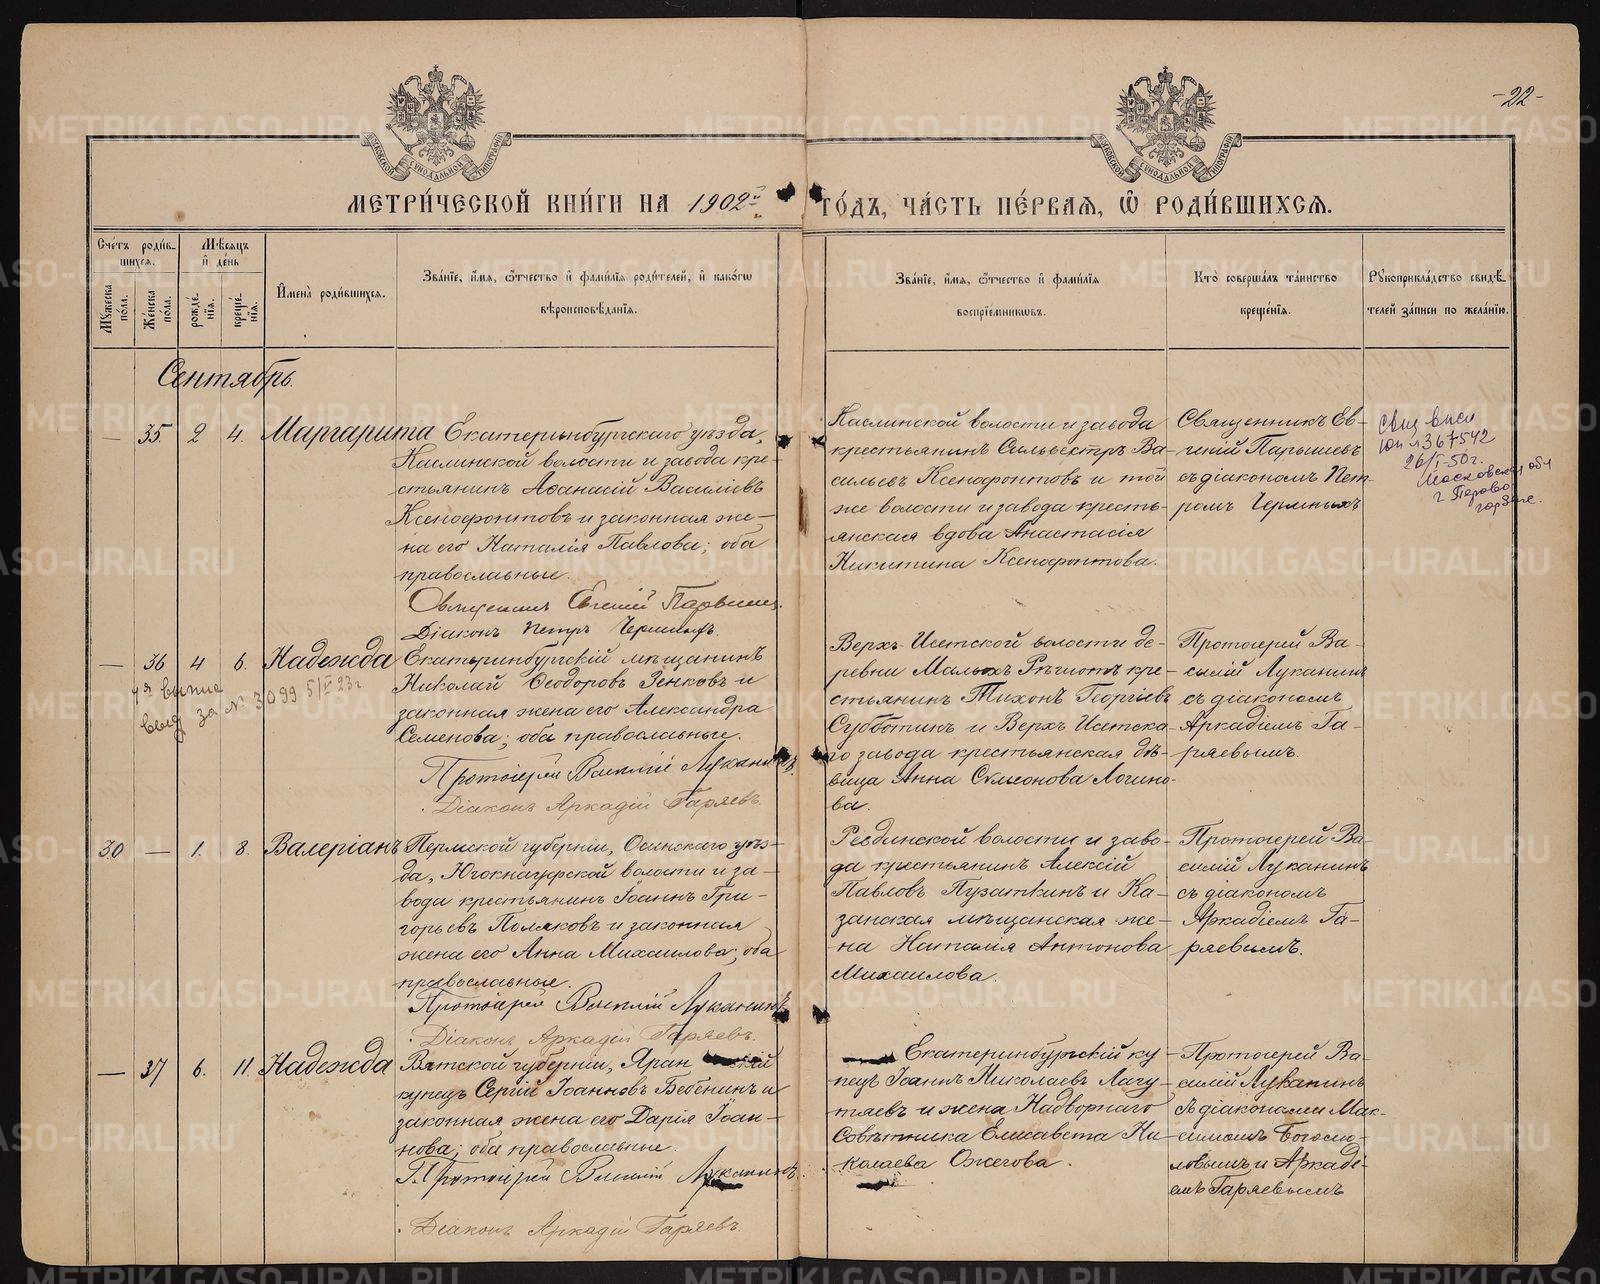 -22-
МЕТРИ́ЧЕСКОЙ КНИ́ГИ НА 1902й ГО́ДЪ, ЧА́СТЬ ПЕ́РВАЯ, Ѿ РОДИ́ВШИХСЯ.
Сче́тъ роди́в-
шихся.
Му́жеска по́ла.
Же́нска по́ла.
Мѣ́сяцъ и̓ де́нь
рожде́-
нїя.
креще́-
нїя.
И̓мена̀ роди́вшихся.
Зва́нїе, и̓́мя, ѻ҆́тчество и̓ фами́лїя роди́телей, и̓ како́гѡ
вѣроисповѣ́данїя.
Зва́нїе, и̓́мя, ѻ҆́тчество и̓ фами́лїя
воспрїе́мникѡвъ.
Кто̀ соверша́лъ та́инство
креще́нїя.
Рꙋкоприкла́дство свидѣ́-
телей за́писи по жела́нїю.
Сентябрь.
— 35. 2 4. Маргарита
Екатеринбургскаго уѣзда,
Каслинской волости и завода кре-
стьянинъ Аѳанасій Василіевъ
Ксенофонтовъ и законная же-
на его Наталія Павлова; оба
православные.
Священникъ Евгеній
Діаконъ Петръ
Каслинской волости и завода
крестьянинъ Сильвестръ Ва-
сильевъ Ксенофонтовъ и той
же волости и завода кресть-
янская вдова Анастасія
Никитина Ксенофонтова.
Священникъ Ев-
геній Парышевъ
съ діакономъ Пет-
ромъ
367542
26/I-50г.
Московская обл
г Перово
— 36 4 6. Надежда
№ 3099
Екатеринбургскій мѣщанинъ
Николай Ѳеодоровъ Зенковъ и
законная жена его Александра
Семенова; оба православные.
Протоіерей Василій Луканинъ.
Діаконъ Аркадій Гаряевъ.
Верхъ-Исетской волости де-
ревни Малыхъ Рѣшотъ кре-
стьянинъ Тихонъ Георгіевъ
Субботинъ и Верхъ Исетска-
го завода крестьянская дѣ-
вица Анна Симеонова Логино-
ва.
Протоіерей Ва-
силій Луканинъ
съ діакономъ
Аркадіемъ Га-
ряевымъ.
30 — 1. 8. Валеріанъ
Пермской губерніи, Осинскаго уѣз-
да, Югокнауфской волости и за-
вода крестьянинъ Іоаннъ Гри-
горьевъ Поляковъ и законная
жена его Анна Михаилова; оба
православные.
Протоіерей Василій Луканинъ
Діаконъ Аркадій Гаряевъ.
Ревдинской волости и заво-
да крестьянинъ Алексій
Павловъ Пузаткинъ и Ка-
занская мѣщанская же-
на Наталія Антонова
Михаилова.
Протоіерей Ва-
силій Луканинъ
съ діакономъ
Аркадіемъ Га-
ряевымъ.
— 37 6. 11. Надежда
Вятской губерніи, Яран
купецъ Сергій Іоанновъ Бебенинъ и
законная жена его Дарія Іоан-
нова; оба православные.
Протоіерей Василій Луканинъ.
Діаконъ Аркадій Гаряевъ.
Екатеринбургскій ку-
пецъ Іоаннъ Николаевъ Лагу-
тяевъ и жена Надворнаго
Совѣтника Елисавета Ни-
колаева Ожегова.
Протоіерей Ва-
силій Луканинъ
съ діаконами Мак-
симомъ Богосло-
ловымъ и Аркаді-
емъ Гаряевымъ